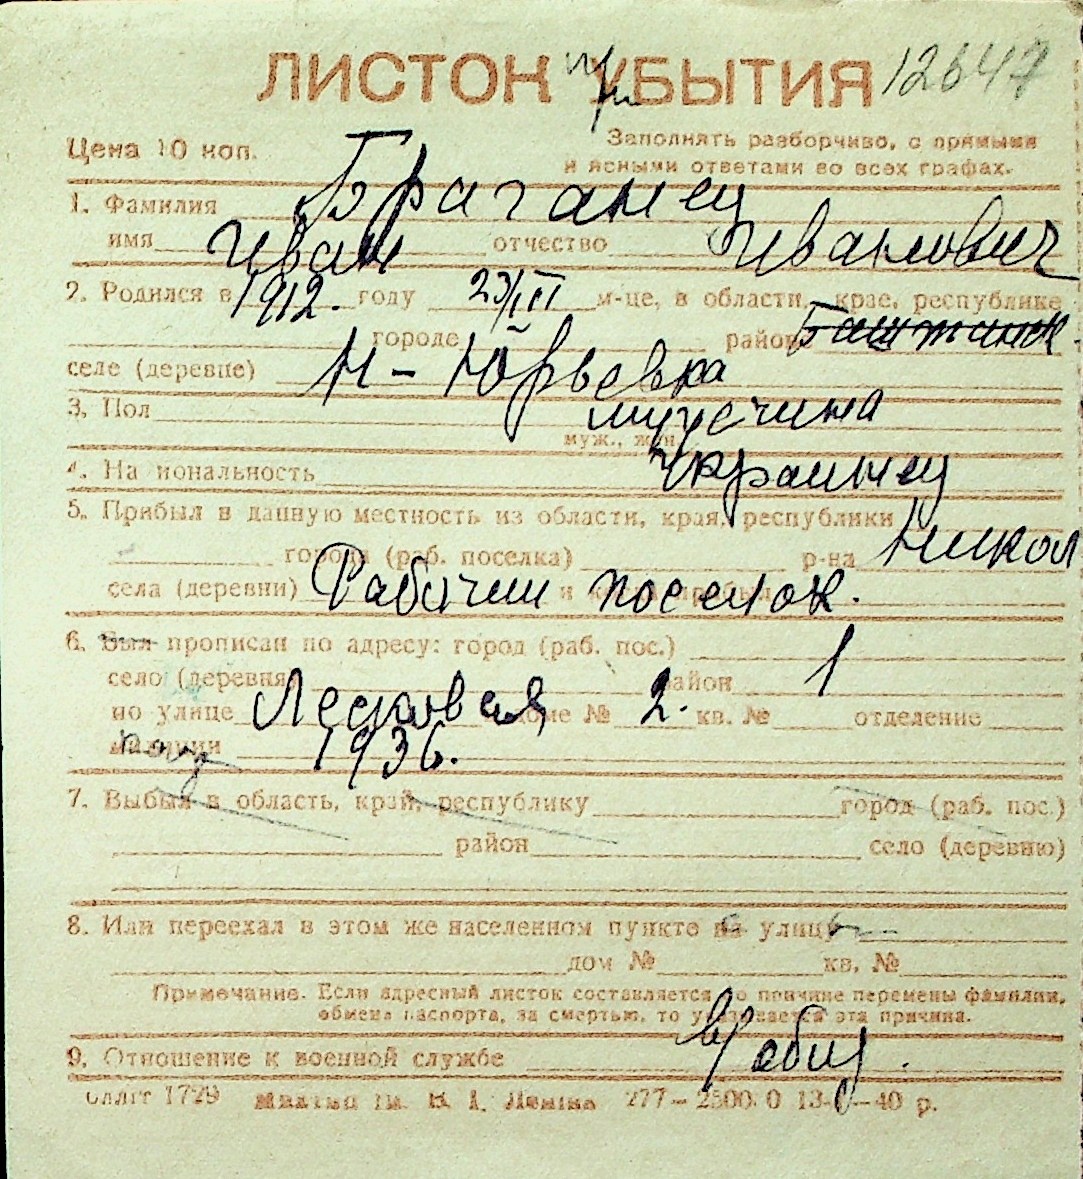 ЛИСТОК УБЫТИЯ при 12647
Цена 10 коп. Заполнять разборчиво, с прямыми
и ясными ответами во всех графах.
1. Фамилия Браганец
имя Иван отчество Иванович
2. Родился в 1912. году 23/III м-це, в области, крае, республике
городе район Баштанск
селе (деревне) Н-Юрьевка
3. Пол мужчина
муж., жен.
4. Национальность Украинец
5. Прибыл в данную местность из области, края, республики
города (раб. поселка) р-на Никол
села (деревни) Рабочий поселок.
6. Был прописан по адресу: город (раб. пос.)
село (деревня) район 1
по улице доме № 2. кв. № отделение
милиции 1936.
7. Выбыл в область, край, республику город (раб. пос.)
район село (деревню)
8. Или переехал в этом же населенном пункте на улицу
дом № кв. №
Примечание. Если адресный листок составляется по причине перемены фамилии,
обмена паспорта, за смертью, то указывается эта причина.
9. Отношение к военной службе
1729 ім. В. І. Леніна 277—2500.0 13- —40 р.